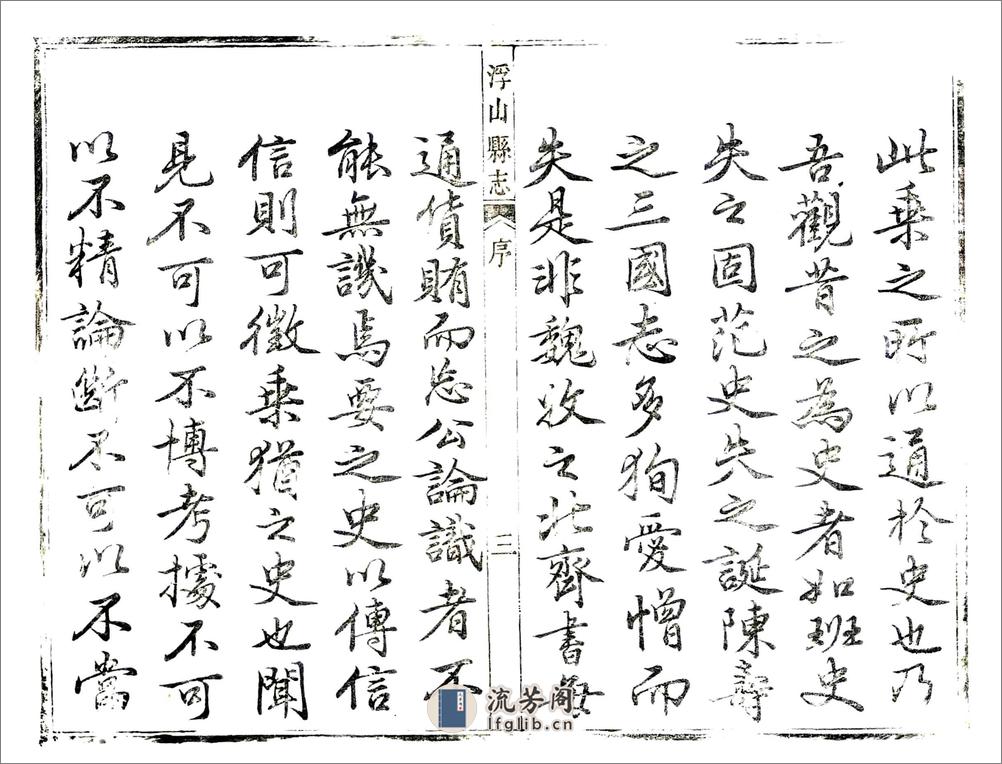 此乗之所以通於史也乃
吾觀昔之為史者如班史
失之固范史失之誕陳壽
之三國志多狥愛憎而
失是非魏收之北齊書
浮山縣志
序
三
通貨賄而忘公論識者不
能無譏焉要之史以傳信
信則可徵乗猶之史也聞
見不可以不博考據不可
以不精論斷不可以不當
流芳阁
lfglib.cn